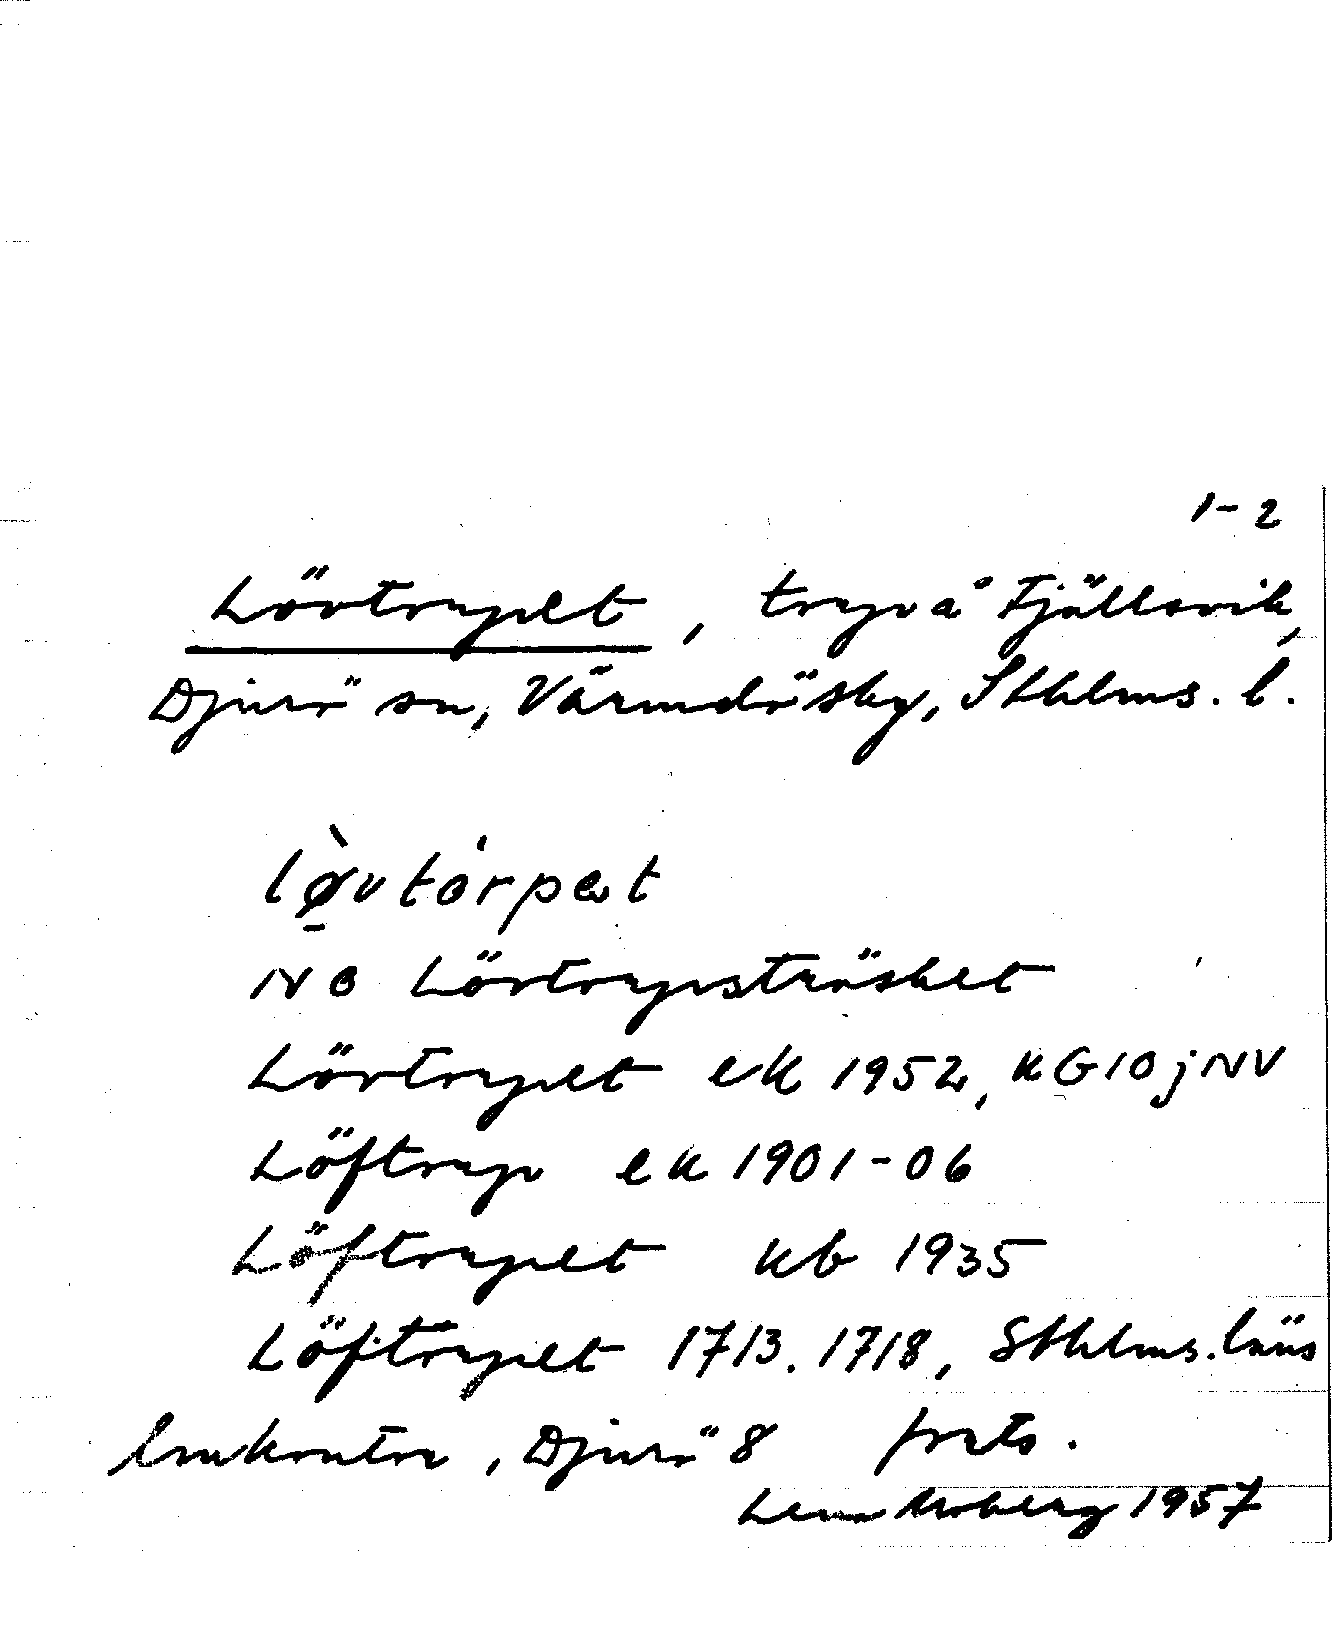 1-2
Lövtorpet, torp å Fjällsvik,
Djurö sn, Värmdö skg, Sthlms. l.
lø̀vtȯrpət
NB Lövtorpsträsket
Lövtorpet ek 1952, KG10jNV
Löftorp ek 1901-06
Löftorpet kb 1935
Löftorpet 1713. 1718, Sthlms. läns
lmkontor, Djurö 8 forts.
Moberg 1957